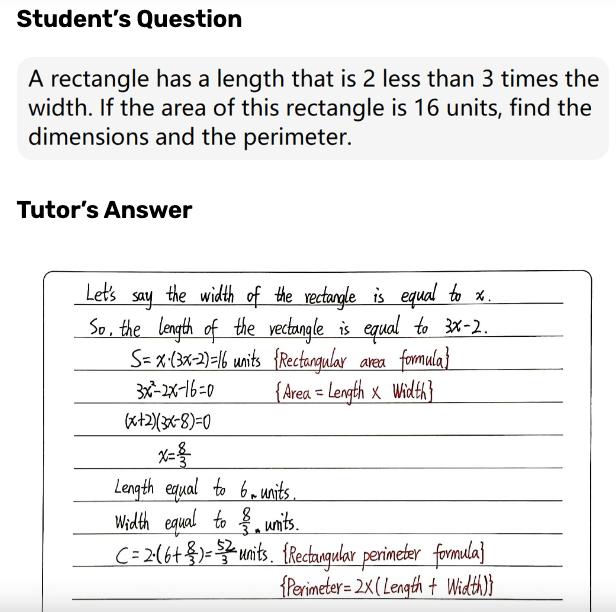 Student's Question
A rectangle has a length that is 2 less than 3 times the
width. If the area of this rectangle is 16 units, find the
dimensions and the perimeter.
Tutor's Answer
Let's say the width of the rectangle is equal to x.
So, the length of the rectangle is equal to 3x-2.
S= x·(3x-2)=16 units {Rectangular area formula}
3x²-2x-16=0 {Area = Length x Width}
(x+2)(3x-8)=0
x=8/3
Length equal to 6 units.
Width equal to 8/3 units.
C = 2·(6+8/3)=52/3 units. {Rectangular perimeter formula}
{Perimeter= 2x(Length + Width)}